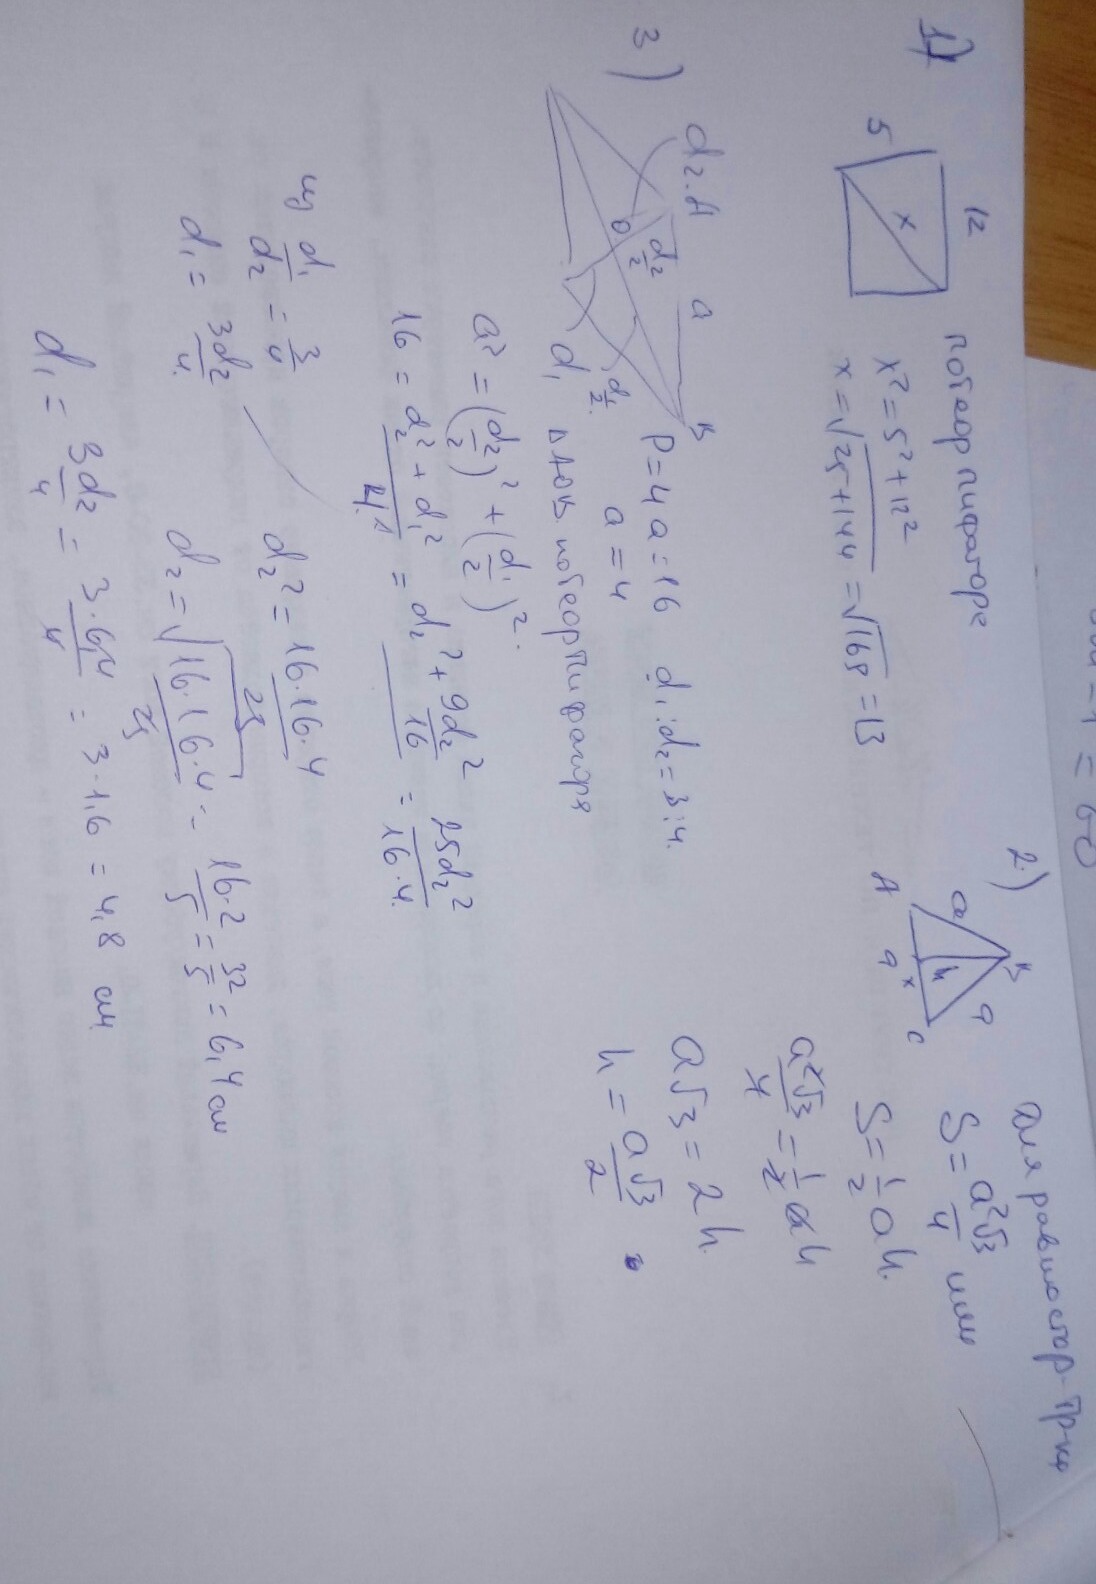 1)
5
12
x
по теор пифагоре
x² = 5² + 12²
x = √25+144 = √169 = 13
2.)
A
a
B
a
h
a
x
C
Для равностор. тр-ка
S = a²√3/4 или
S = 1/2 ah.
a²√3/4 = 1/2 ah
a√3 = 2h.
h = a√3/2
3)
d₂.
A
a
B
O
d₂/2
d₁/2.
d₁
P = 4a = 16
d₁:d₂ = 3:4.
a = 4
Δ AOB. по теор Пифагоря
a² = (d₂/2)² + (d₁/2)².
16 = d₂² + d₁²/4. = d₂² + 9d₂²/16 = 25d₂²/16·4.
из d₁/d₂ = 3/4
d₁ = 3d₂/4.
d₂² = 16·16·4/25
d₂ = √16·16·4/25 = 16·2/5 = 32/5 = 6,4 см
d₁ = 3d₂/4 = 3·6,4/4 = 3·1,6 = 4,8 см
= 60